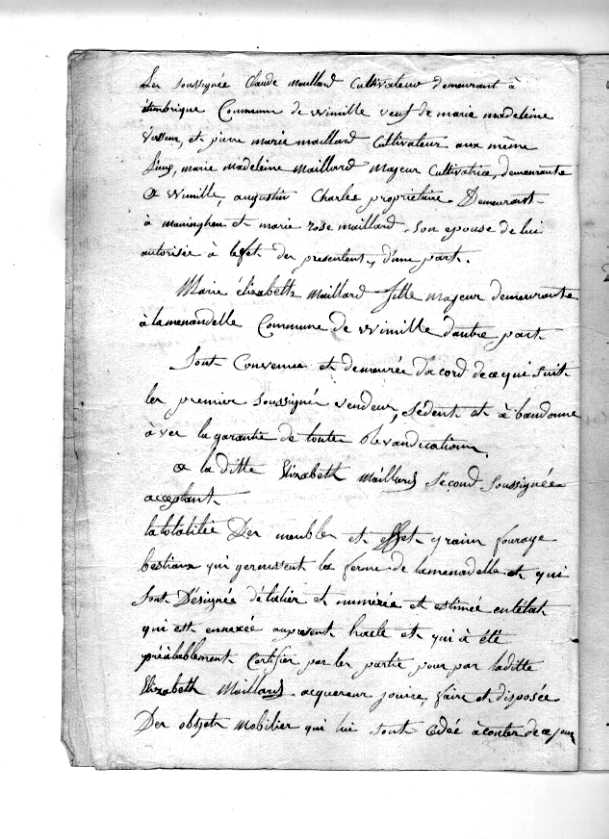 Les soussignée Claude maillard Cultivateur demeurant à
Commune de wimille veuf de marie madeleine
et pierre marie maillard Cultivateur aux même
lieux, marie madeleine Maillard Majeur Cultivatrice, demeurante
a wimille, augustin Charles propriétaire Demeurant
à maninghen et marie rose maillard son epouse de lui
autorisée à leffet des presentent, d'une part.
Marie élizabeth maillard fille majeur demeurante
à lamenandelle Commune de wimille dautre part
Sont Convenue et demeurée dacord de ce qui suit
les premier soussignée vendeur, Sèdent et à bandonne
àvec la garantie de toutes Révandications,
a la ditte Elizabeth Maillard Second Soussignée
acceptant
la totalitié Des meubles et effet grain fourage
bestiaux qui garnissent la ferme de lamenadelle et qui
sont Désignée détalier et numérée et estimée en létat
qui est annexée au present hacte et qui à été
préàlablement Certifier par les partie pour par laditte
Elizabeth Maillard acquereur jouire, faire et disposée
Des objets mobilier qui lui sont Cédée à conter de ce jour